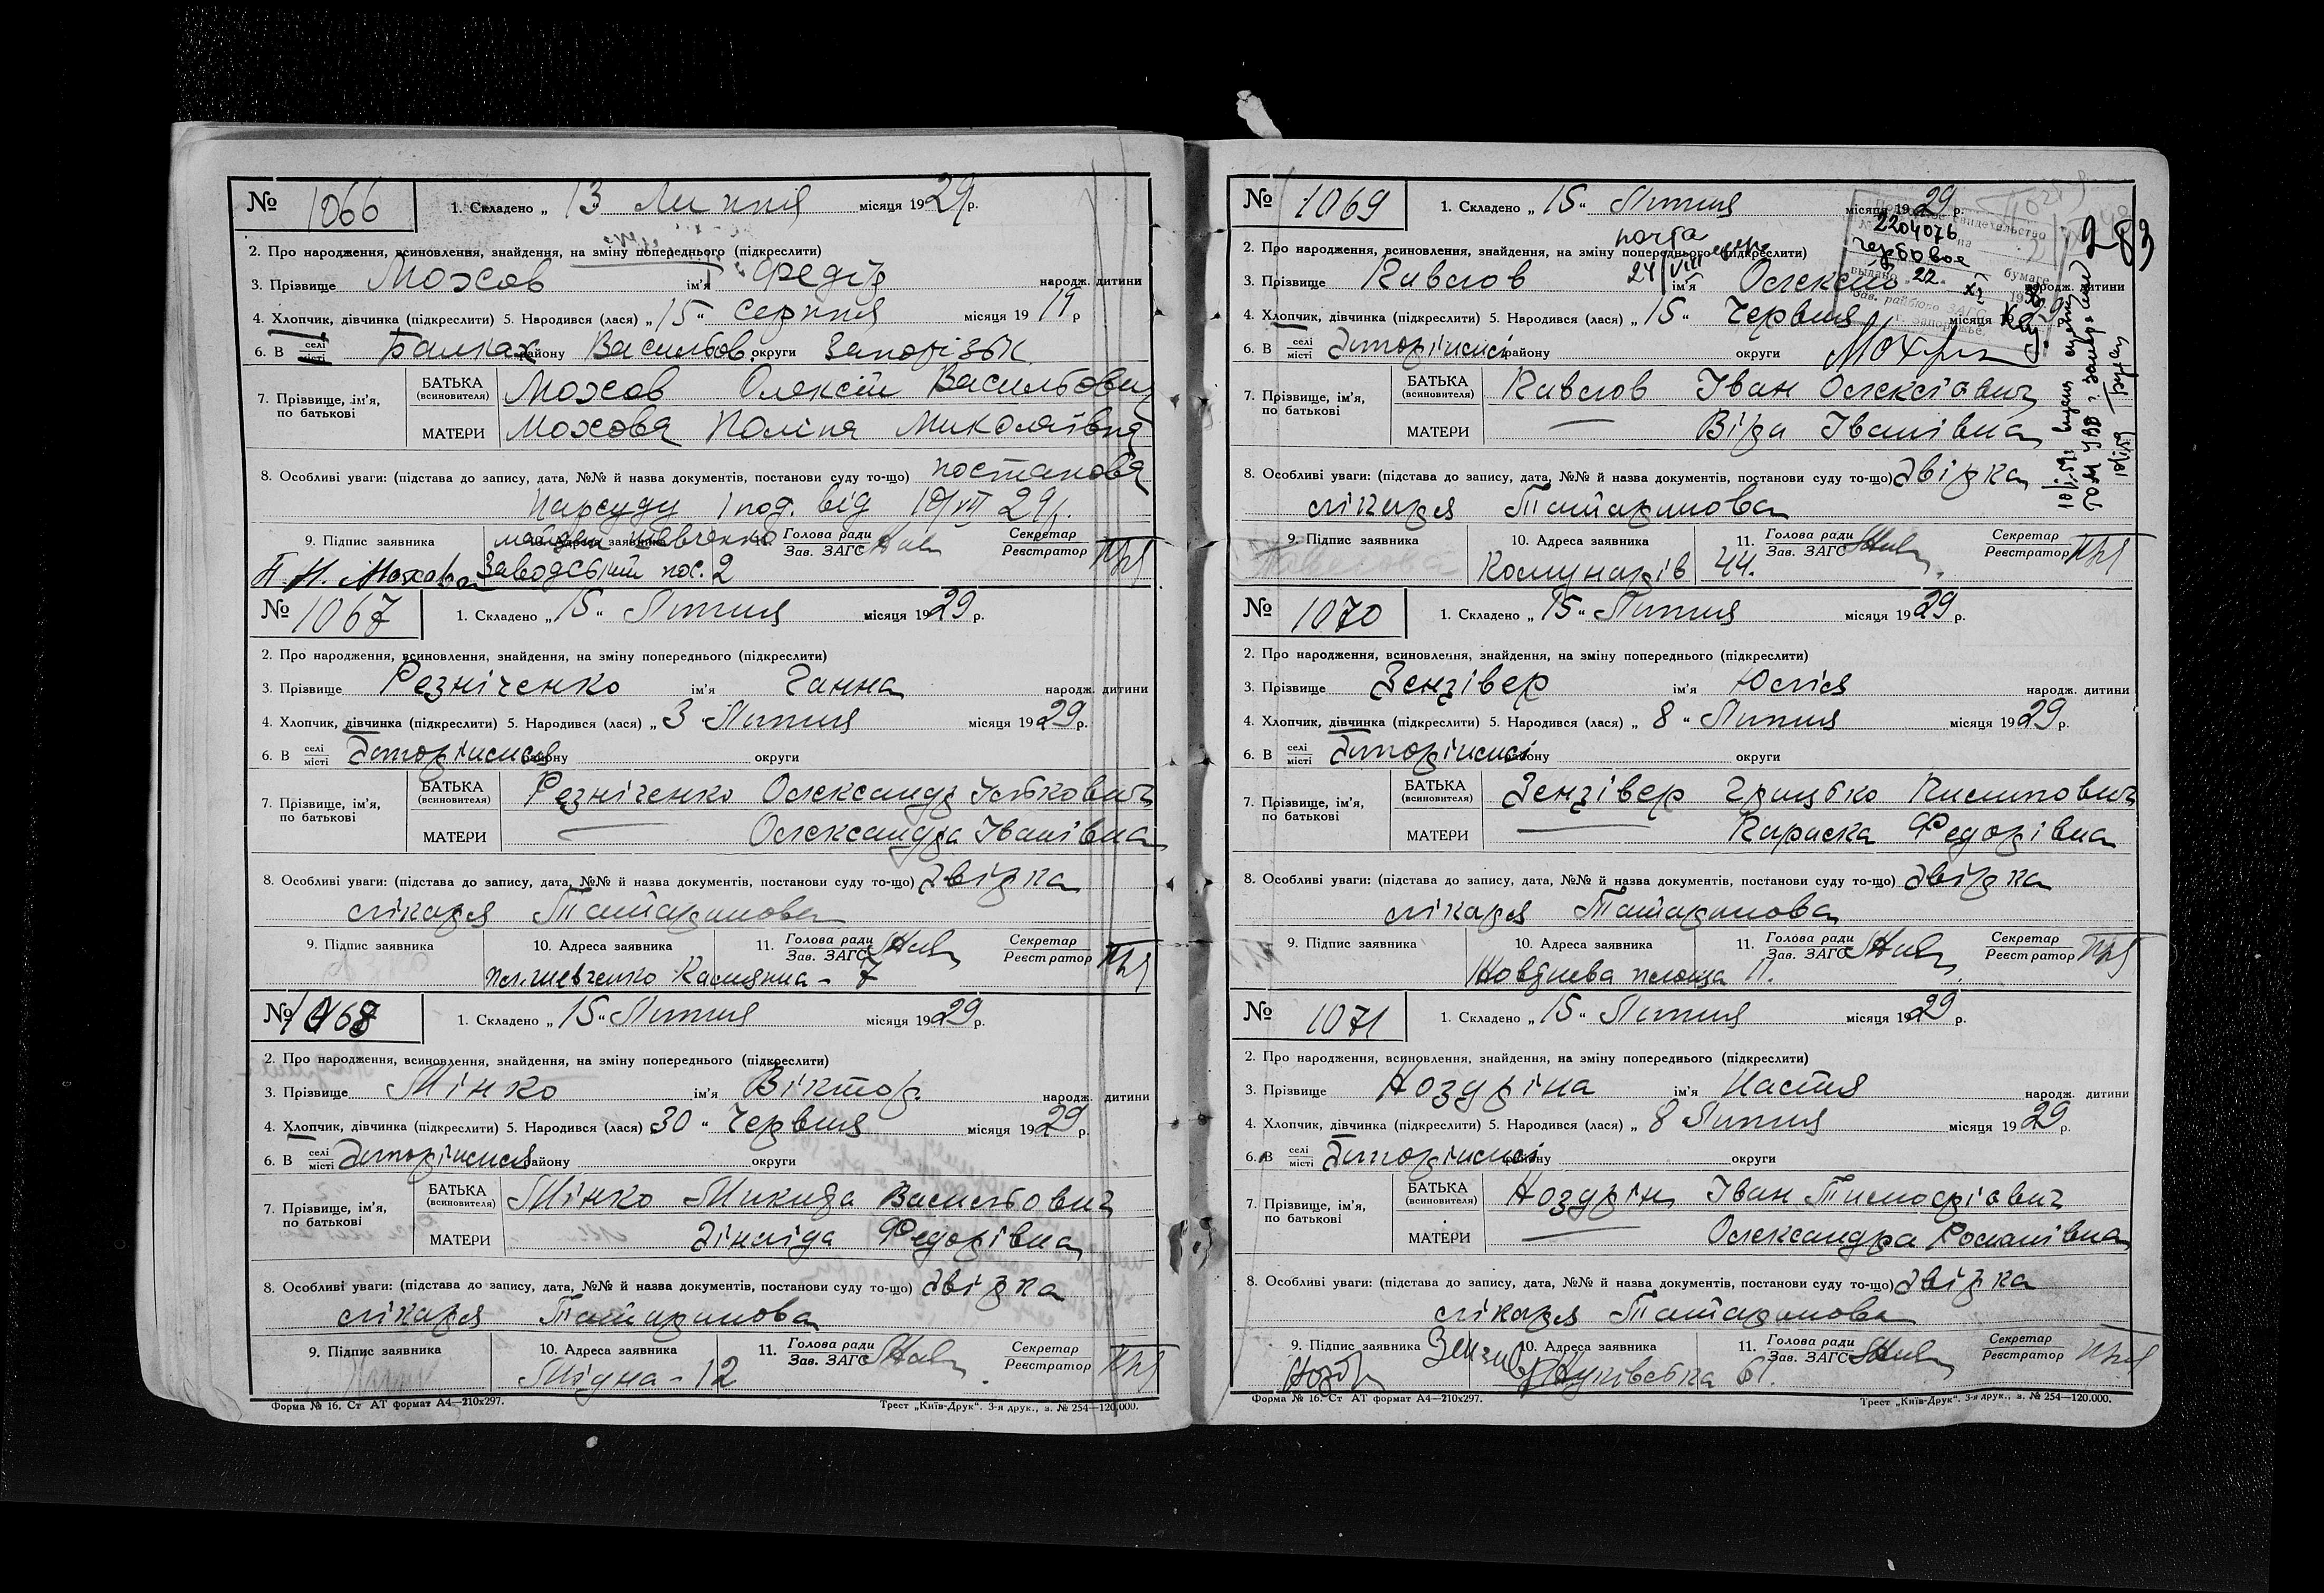 № 1066 1. Складено „ 13 Липня місяця 1929 р.
2. Про народження, всиновлення, знайдення, на зміну попереднього (підкреслити)
3. Прізвище Мохов ім'я Федір народж. дитини
4. Хлопчик, дівчинка (підкреслити) 5. Народився (лася) „ 15 “ Серпня місяця 19 19 р
6. В селі місті Балках району Васильов. округи Запорізьк
7. Прізвище, ім'я, по батькові БАТЬКА (всиновителя) Мохов Олексій Васильович
МАТЕРИ Мохова Поліна Миколаївна
8. Особливі уваги: (підстава до запису, дата, №№ й назва документів, постанови суду то-що) постанова
Нарсуду 1 под. від 19/VI 29р.
9. Підпис заявника 10. Адреса заявника майдан Шевченко 11. Голова ради Зав. ЗАГС Секретар Реєстратор
П. Н. Мохова Заводській пос. 2
№ 1067 1. Складено „ 15 “ Липня місяця 1929 р.
2. Про народження, всиновлення, знайдення, на зміну попереднього (підкреслити)
3. Прізвище Резніченко ім'я Ганна народж. дитини
4. Хлопчик, дівчинка (підкреслити) 5. Народився (лася) „ 3 Липня місяця 1929 р.
6. В селі місті Запоріжжі району округи
7. Прізвище, ім'я, по батькові БАТЬКА (всиновителя) Резніченко Олександр Ількович
МАТЕРИ — Олександра Іванівна
8. Особливі уваги: (підстава до запису, дата, №№ й назва документів, постанови суду то-що) Звірка
лікаря Татаринова
9. Підпис заявника 10. Адреса заявника 11. Голова ради Зав. ЗАГС Секретар Реєстратор
пл. Шевченко 7
№ 1068 1. Складено „ 15 “ Липня місяця 1929 р.
2. Про народження, всиновлення, знайдення, на зміну попереднього (підкреслити)
3. Прізвище Мінко ім'я Віктор. народж. дитини
4. Хлопчик, дівчинка (підкреслити) 5. Народився (лася) 30 “ Червня місяця 1929 р.
6. В селі місті Запоріжжя району округи
7. Прізвище, ім'я, по батькові БАТЬКА (всиновителя) Мінко Микида Васильович
МАТЕРИ Зінаїда Федорівна
8. Особливі уваги: (підстава до запису, дата, №№ й назва документів, постанови суду то-що) Звірка
лікаря Татаринова
9. Підпис заявника 10. Адреса заявника 11. Голова ради Зав. ЗАГС Секретар Реєстратор
Мідна - 12
Форма № 16. Ст АТ формат А4—210x297. Трест „Київ-Друк“. 3-я друк., з. № 254—120.000.
№ 1069 1. Складено „ 15 “ Липня місяця 1929 р.
283
2204076
гербовое
2. Про народження, всиновлення, знайдення, на зміну попереднього (підкреслити)
3. Прізвище Кивлов ім'я Олексій народж. дитини
4. Хлопчик, дівчинка (підкреслити) 5. Народився (лася) „ 15 “ Червня місяця 1929
6. В селі місті Запоріжжі району округи
7. Прізвище, ім'я, по батькові БАТЬКА (всиновителя) Кивлов Іван Олексіович
МАТЕРИ — Віра Іванівна
8. Особливі уваги: (підстава до запису, дата, №№ й назва документів, постанови суду то-що) Звірка
лікаря Татаринова
9. Підпис заявника 10. Адреса заявника 11. Голова ради Зав. ЗАГС Секретар Реєстратор
Комунарів 44.
№ 1070 1. Складено „ 15 “ Липня місяця 1929 р.
2. Про народження, всиновлення, знайдення, на зміну попереднього (підкреслити)
3. Прізвище Зензівер ім'я Юлія народж. дитини
4. Хлопчик, дівчинка (підкреслити) 5. Народився (лася) „ 8 “ Липня місяця 1929 р.
6. В селі місті Запоріжжі району округи
7. Прізвище, ім'я, по батькові БАТЬКА (всиновителя) Зензівер Грицько Пилипович
МАТЕРИ — Кириска Федорівна
8. Особливі уваги: (підстава до запису, дата, №№ й назва документів, постанови суду то-що) Звірка
лікаря Татаринова
9. Підпис заявника 10. Адреса заявника 11. Голова ради Зав. ЗАГС Секретар Реєстратор
площа 11.
№ 1071 1. Складено „ 15 “ Липня місяця 1929 р.
2. Про народження, всиновлення, знайдення, на зміну попереднього (підкреслити)
3. Прізвище Ноздріна ім'я Настя народж. дитини
4. Хлопчик, дівчинка (підкреслити) 5. Народився (лася) „ 8 Липня місяця 1929 р.
6. В селі місті Запоріжжі району округи
7. Прізвище, ім'я, по батькові БАТЬКА (всиновителя) Ноздрін Іван Тимофіович
МАТЕРИ — Олександра Романівна
8. Особливі уваги: (підстава до запису, дата, №№ й назва документів, постанови суду то-що) Звірка
лікаря Татаринова
9. Підпис заявника 10. Адреса заявника 11. Голова ради Зав. ЗАГС Секретар Реєстратор
Форма № 16. Ст АТ формат А4—210x297. Трест „Київ-Друк“. 3-я друк., з. № 254—120.000.